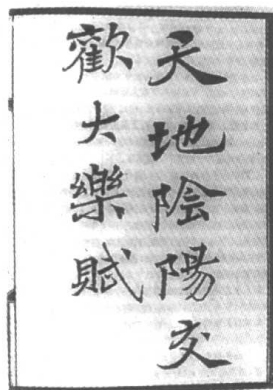 天地陰陽交
歡大樂賦